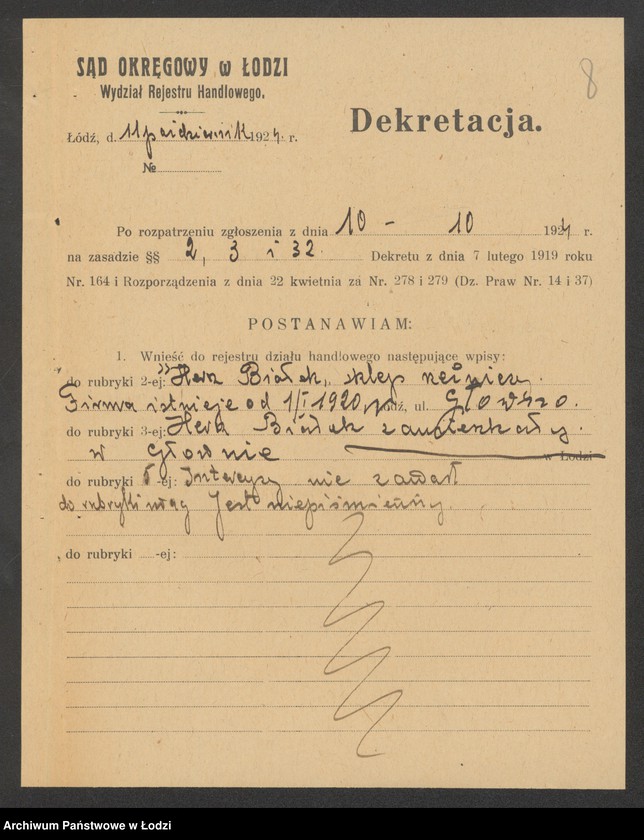 8
SĄD OKRĘGOWY w ŁODZI
Wydział Rejestru Handlowego.
Dekretacja.
Łódź, d. 11 październik 1924 r.
№
Po rozpatrzeniu zgłoszenia z dnia 10 - 10 1924 r.
na zasadzie §§ 2, 3 i 32 Dekretu z dnia 7 lutego 1919 roku
Nr. 164 i Rozporządzenia z dnia 22 kwietnia za Nr. 278 i 279 (Dz. Praw Nr. 14 i 37)
POSTANAWIAM:
1. Wnieść do rejestru działu handlowego następujące wpisy:
do rubryki 2-ej: "Herz Białek" sklep rzeźniczy.
Firma istnieje od 1/I 1920, Łódź, ul. Głowno.
do rubryki 3-ej: Herz Białek zamieszkały
w Głownie w Łodzi
do rubryki 5-ej: Intercyzy nie zawarł
do rubryki uwag Jest niepiśmienny.
do rubryki -ej:
Archiwum Państwowe w Łodzi